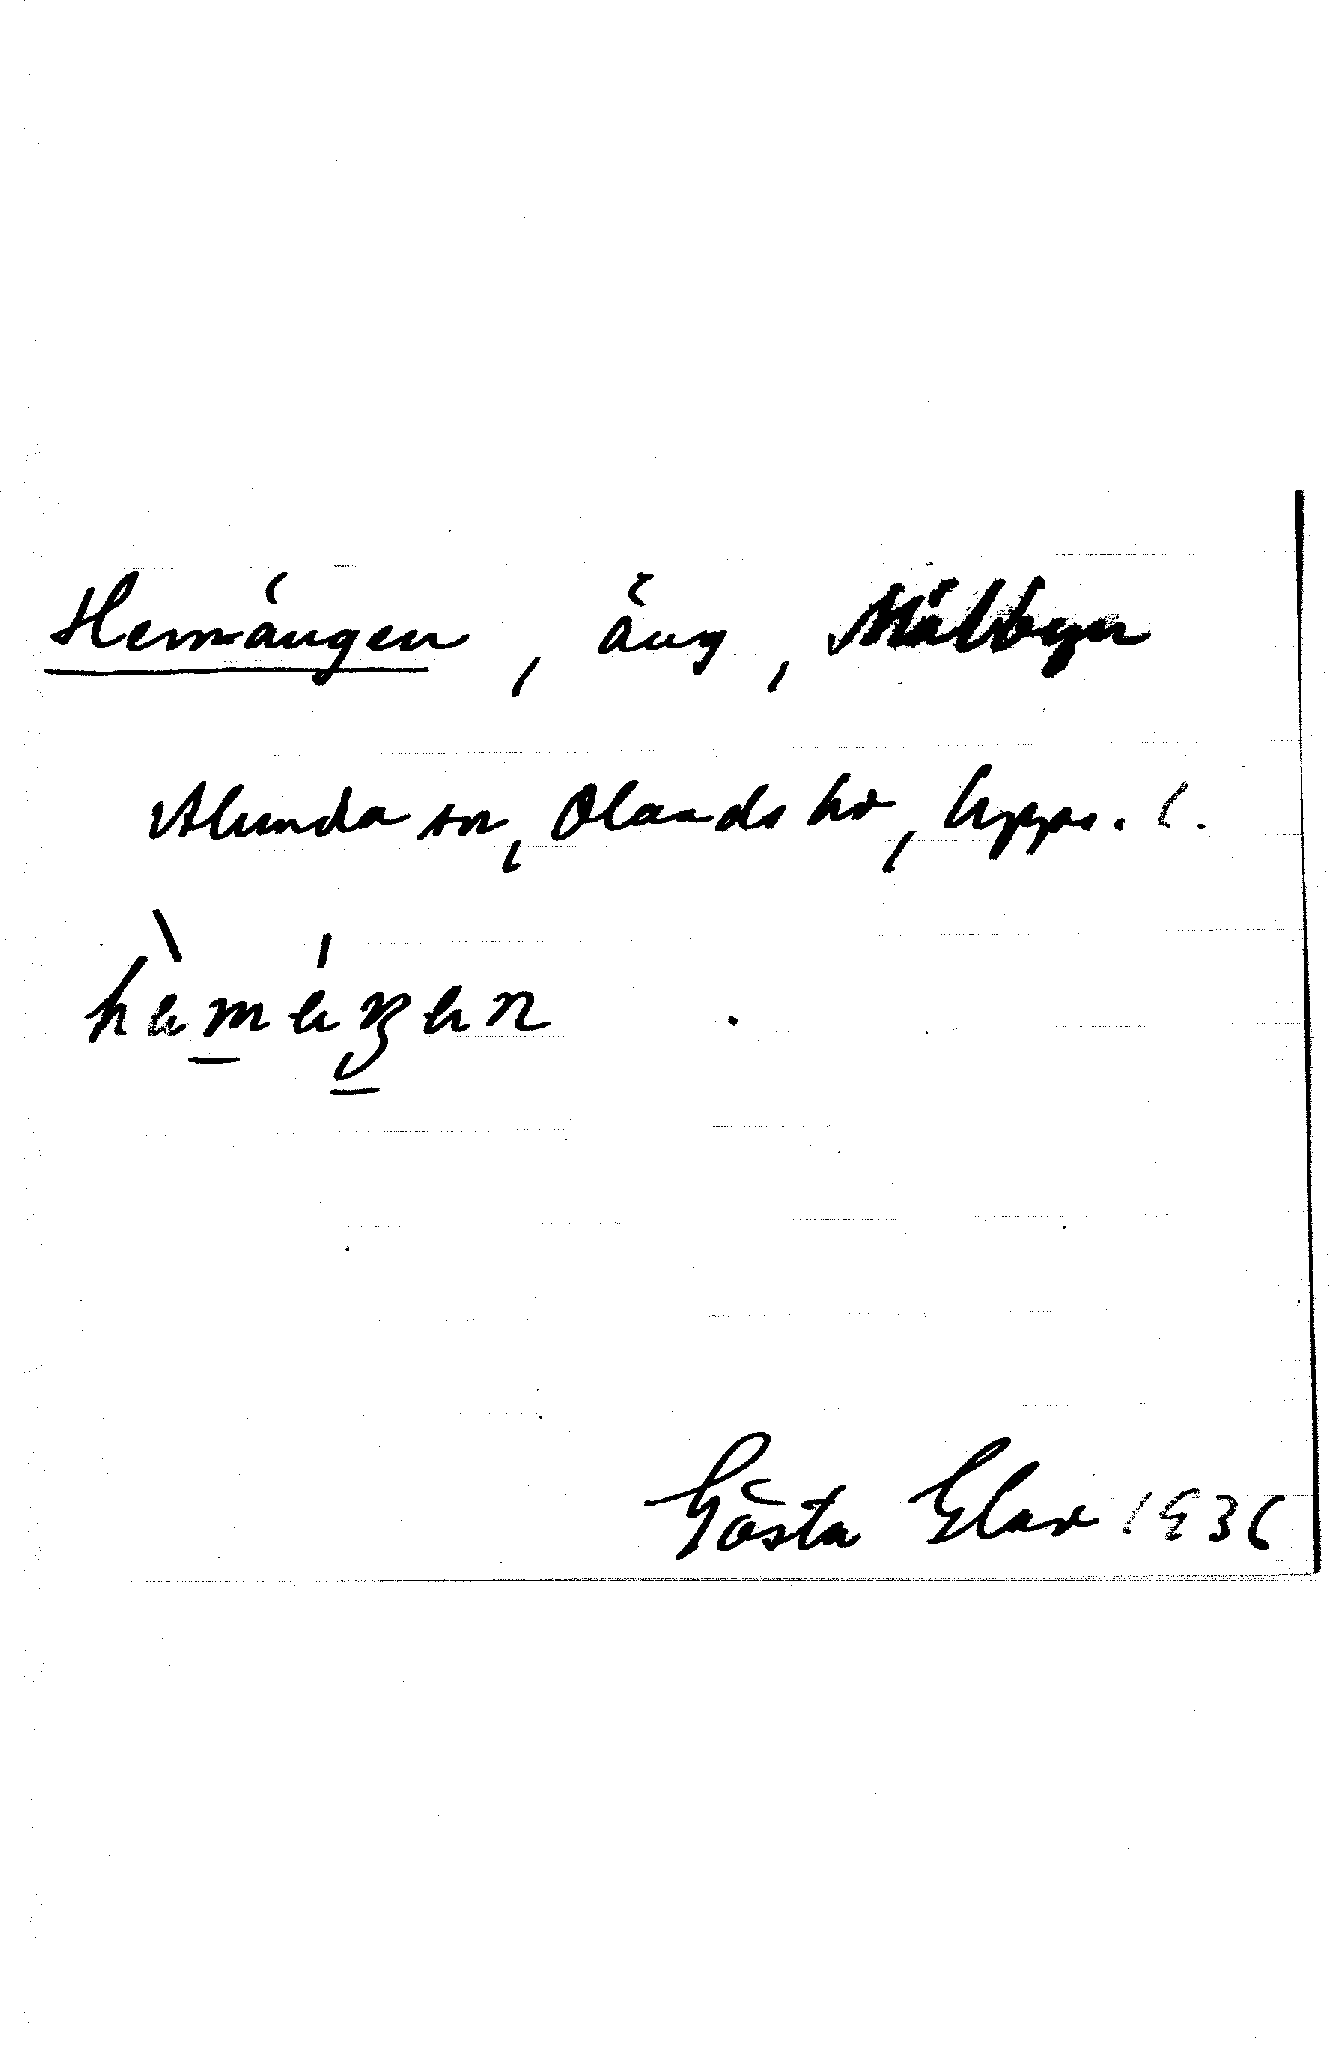 Hemängen, äng, Målbyn
Alunda sn, Olands hd, Upps. l.
hèmèŋen
Gösta Elav 1936